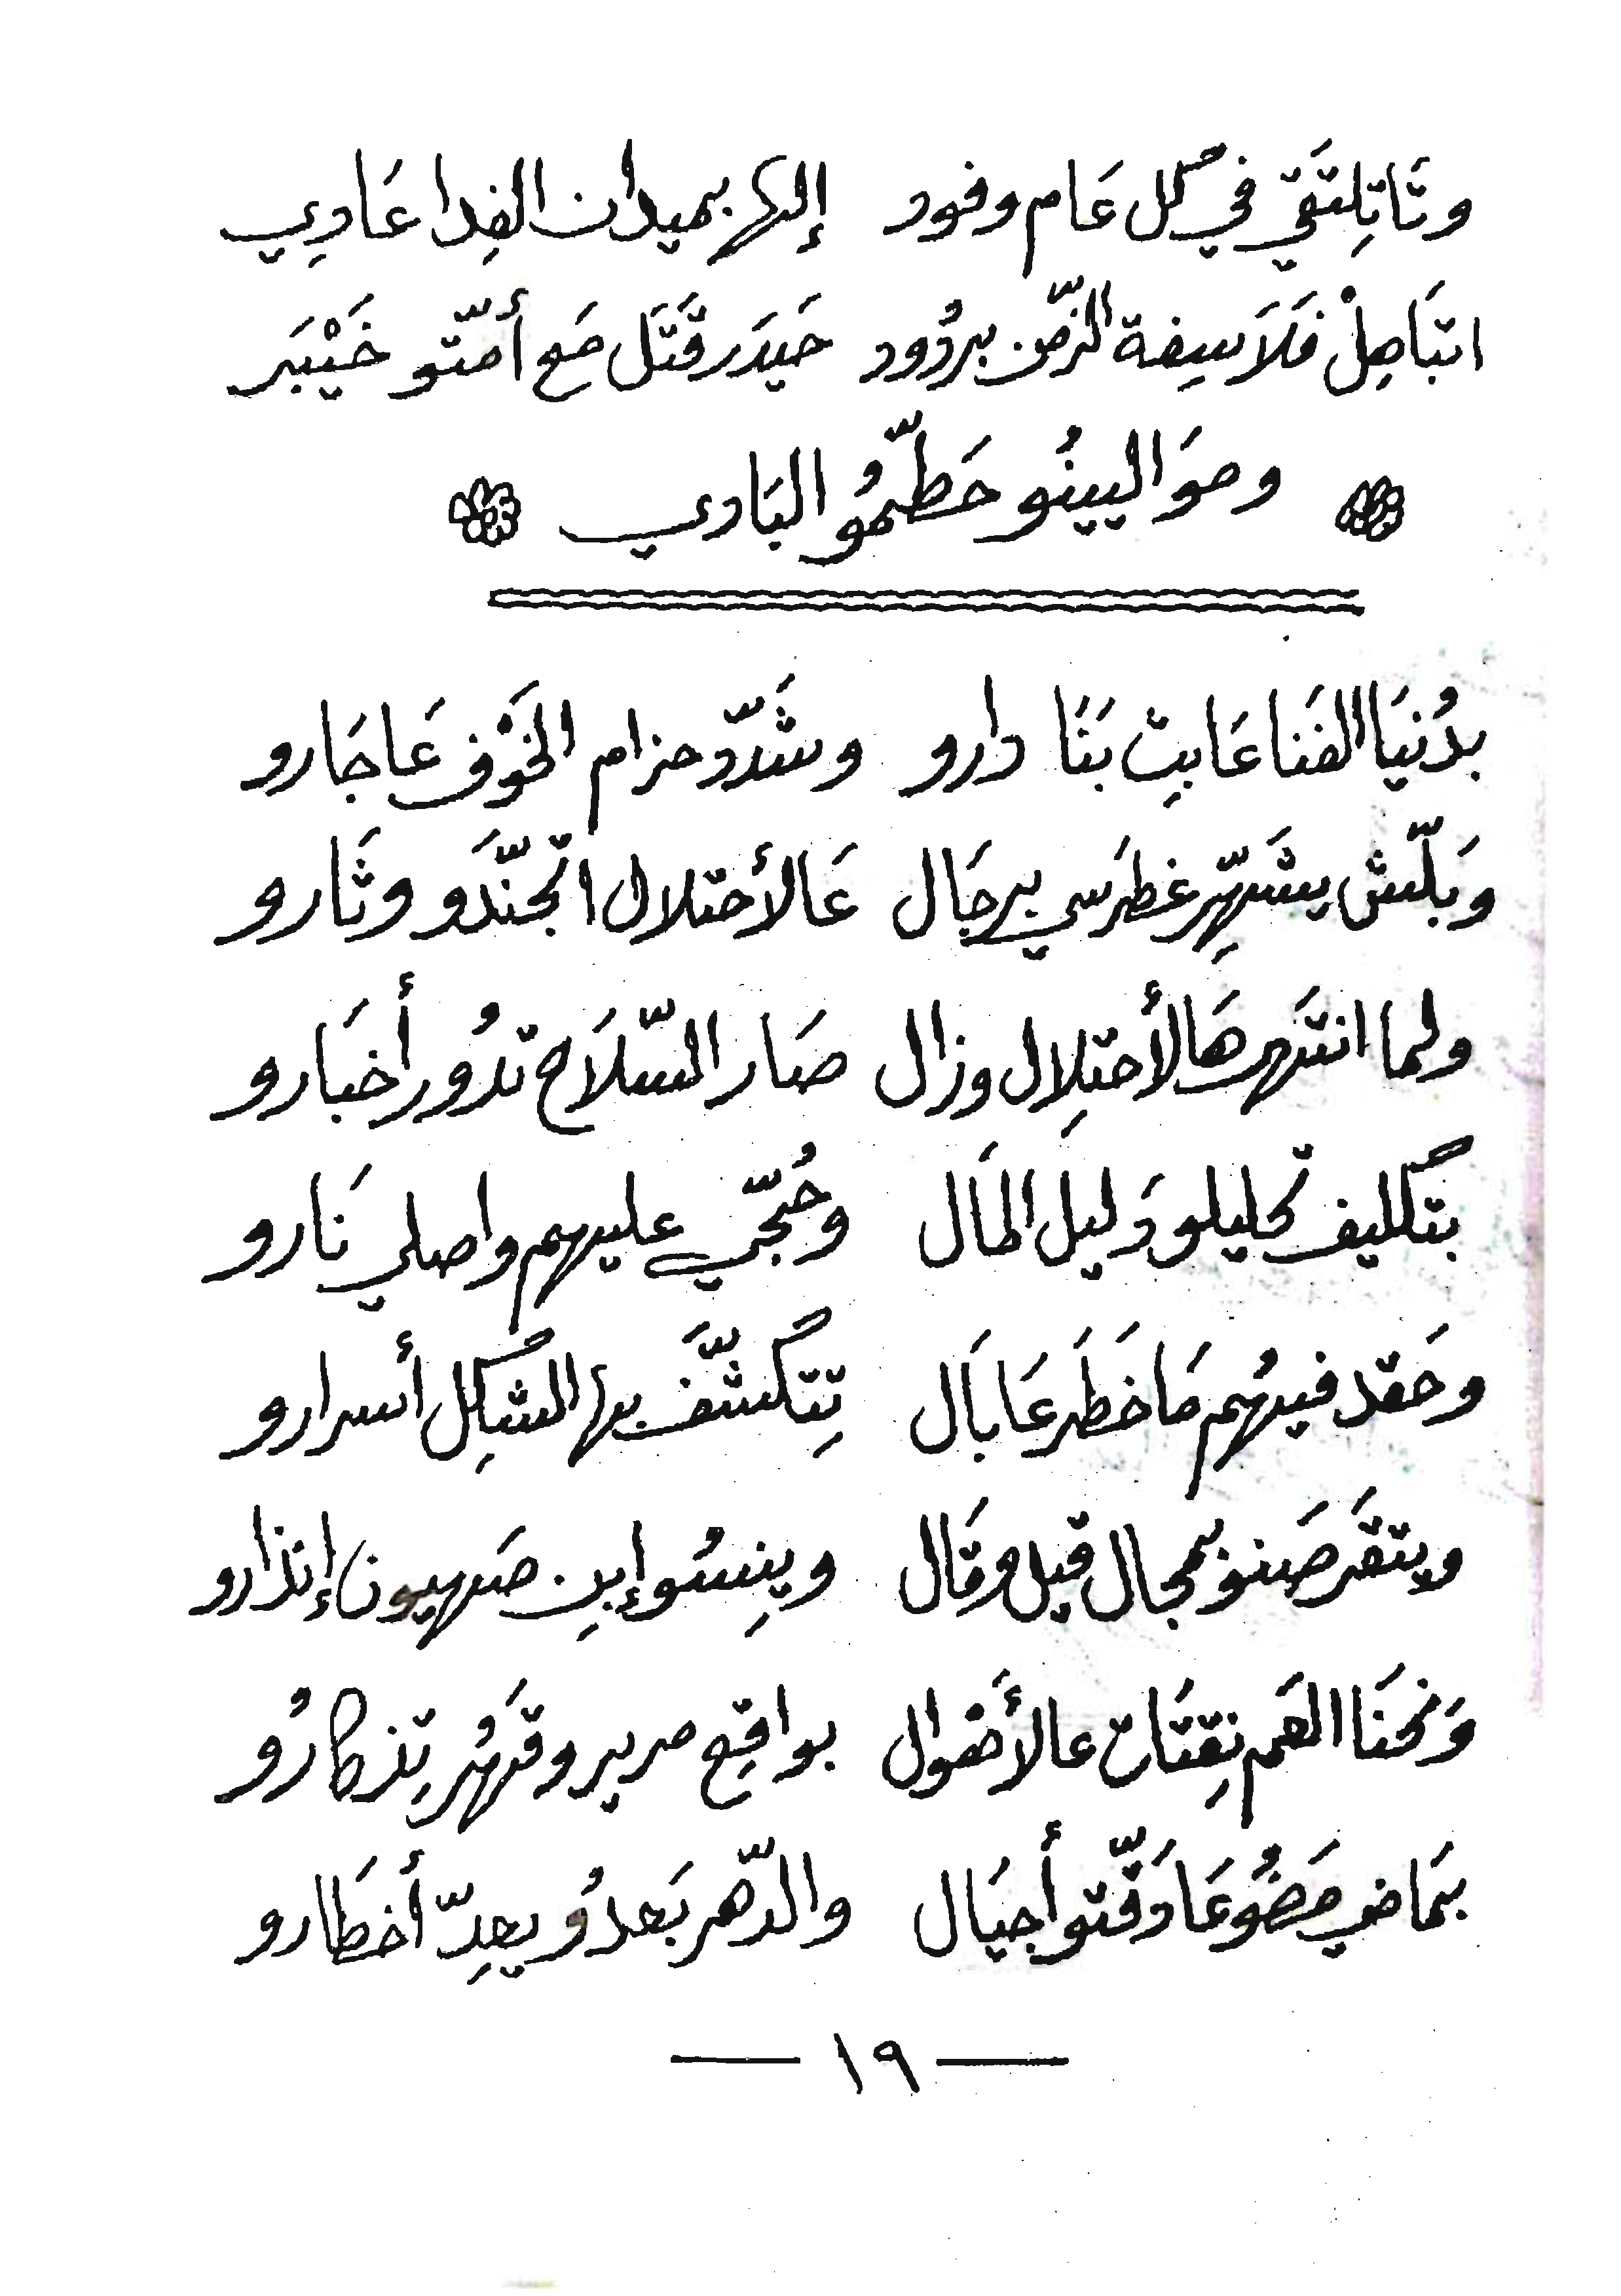 وتَا تِلتقَي في كل عَام وفود إلها بميدان الفِدا عَادِيي
اتبَاصِلْ فلَاسِفة الزّمن بردُود حَيدَر قَتَل مَع أمّتو خَيْبَر
وموَاليينُو حَطّمُو البَادي
بدُنيَا الفَنا عَابيِت بَنَا دارو وشَدّد حزام الخَوْف عَا جَارو
وَبلّش يشَهِّر غطرَسي برجَال عَالأحتلال اتجنَّدَو وثَارو
ولما انتَهى هَالأحتِلال وزال صَار السّلَاح تدُور أخبَارو
بتكليف تحليلو دَليل المَال وحُجّي عليهم واصلي نَارو
وحَقد فيهُم مَا خَطَر عَا بَال تِتكشَّف بها الشكِل أسرارو
ويتقَرصَنو بمجال قيل وقَال وينِسُو إبن صَهيون إنذارو
وَنحنَا العَم نِقتَات عالأقوال بواقِع مرير وقَهُر تِذكارُو
بمَاضي مَضُو عَا دَفّتو أجيَال والدّهر بَعدُو يعِدّ أخطَارو
— ١٩ —